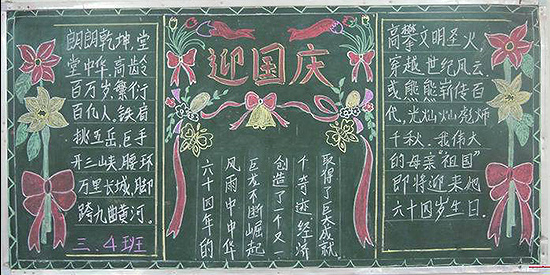 迎国庆
朗朗乾坤,堂
堂中华,高龄
百万岁,繁衍
百亿人,铁肩
挑五岳,巨手
开三峡,腰环
万里长城,脚
跨九曲黄河。
三.4班
六十四年的
风雨中中华
巨龙不断崛起
创造了一个又一
个奇迹,经济
取得了巨大成就
高攀文明圣火,
穿越世纪风云.
或熊熊薪传百
代,光灿灿彪炳
千秋.我伟大
的母亲"祖国"
即将迎来她
六十四岁生日.